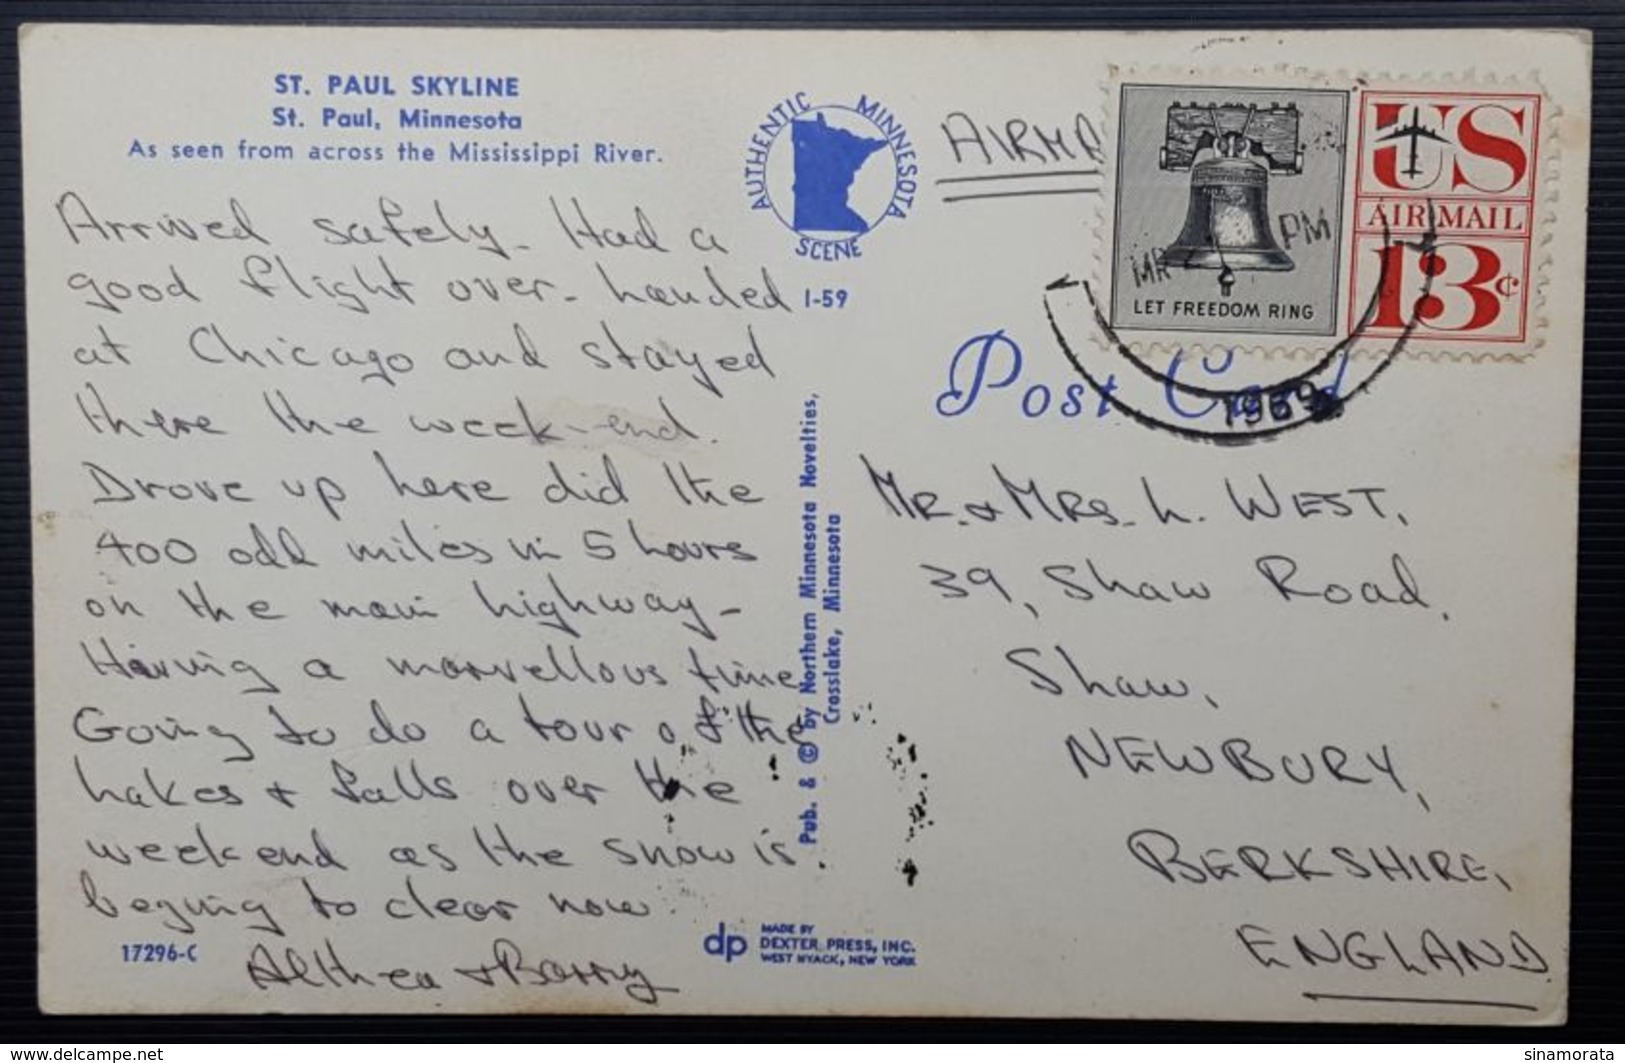 ST. PAUL SKYLINE
St. Paul, Minnesota
As seen from across the Mississippi River.
Arrived safely - Had a
good flight over - Landed
at Chicago and stayed
there the week-end.
Drove up here did the
400 odd miles in 5 hours
on the main highway -
Having a marvellous time
Going to do a tour of the
Lakes + falls over the
weekend as the snow is
begining to clear now
Althea + Barry
17296-C
AUTHENTIC MINNESOTA
SCENE
1-59
Pub. & © by Northern Minnesota Novelties,
Crosslake, Minnesota
dp
MADE BY
DEXTER PRESS, INC.
WEST NYACK, NEW YORK
AIRMA
LET FREEDOM RING
US
AIR MAIL
13¢
MR
PM
1969
Post Card
MR. & MRS. L. WEST,
39, Shaw Road,
Shaw,
NEWBURY,
BERKSHIRE,
ENGLAND
www.delcampe.net
sinamorata